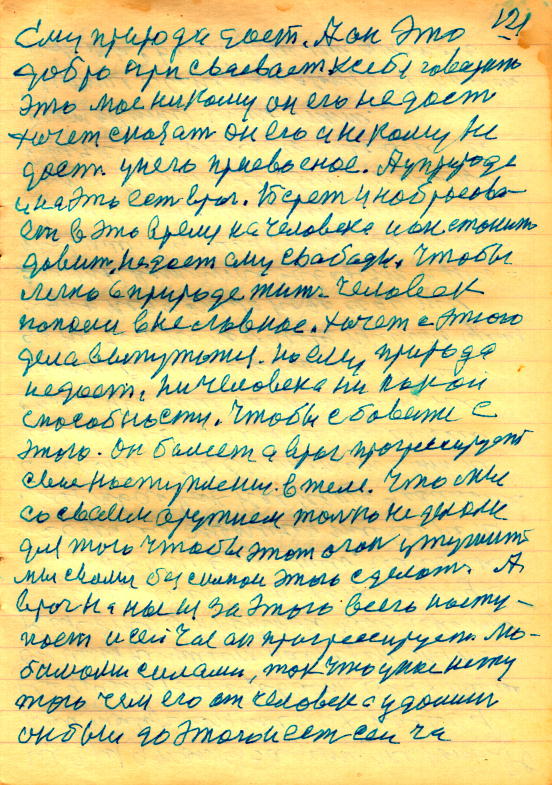 121
Ему природа дает. А он это
добро присваевает к себя говарить
это мое никому он его недаст
хочет сказат он его и некому не
даст. у него присвоеное. А у природе
и на это ест враг. Берет и набросова
ет в это время на человека и он стонить
давит, недает ему свабады. Чтобы
легко в природе жить человек
попови вкесловное. хочет с этого
дела выпутатся. но ему природа
недает, ни человека ни какой
способности. Чтобы сбавеж с
этого. Он балеет а враг прогрессирует
свае наступления. в теле. Что мы
со сваем аружием только не делали
для того чтобы этот агон утушить
мы сваими без силной этого сделать. А
враг на нас из за этого всего насту-
пает и сей час он прогрессирует. лю-
быма ми силами, так что уже нету
того чем его от человека удалить
он был до этого и ест сей ча